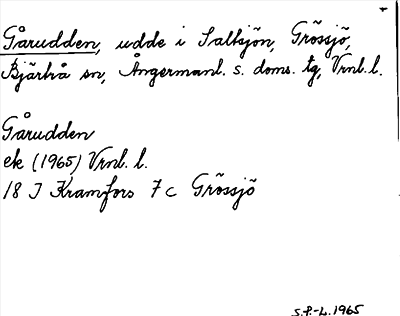 Gårudden, udde i Saltsjön, Grössjö,
Bjärtrå sn, Ångermanl. s. doms. tg, Vrnl. l.
Gårudden
ek (1965) Vrnl. l.
18 J Kramfors 7 c Grössjö
S.P.-L. 1965